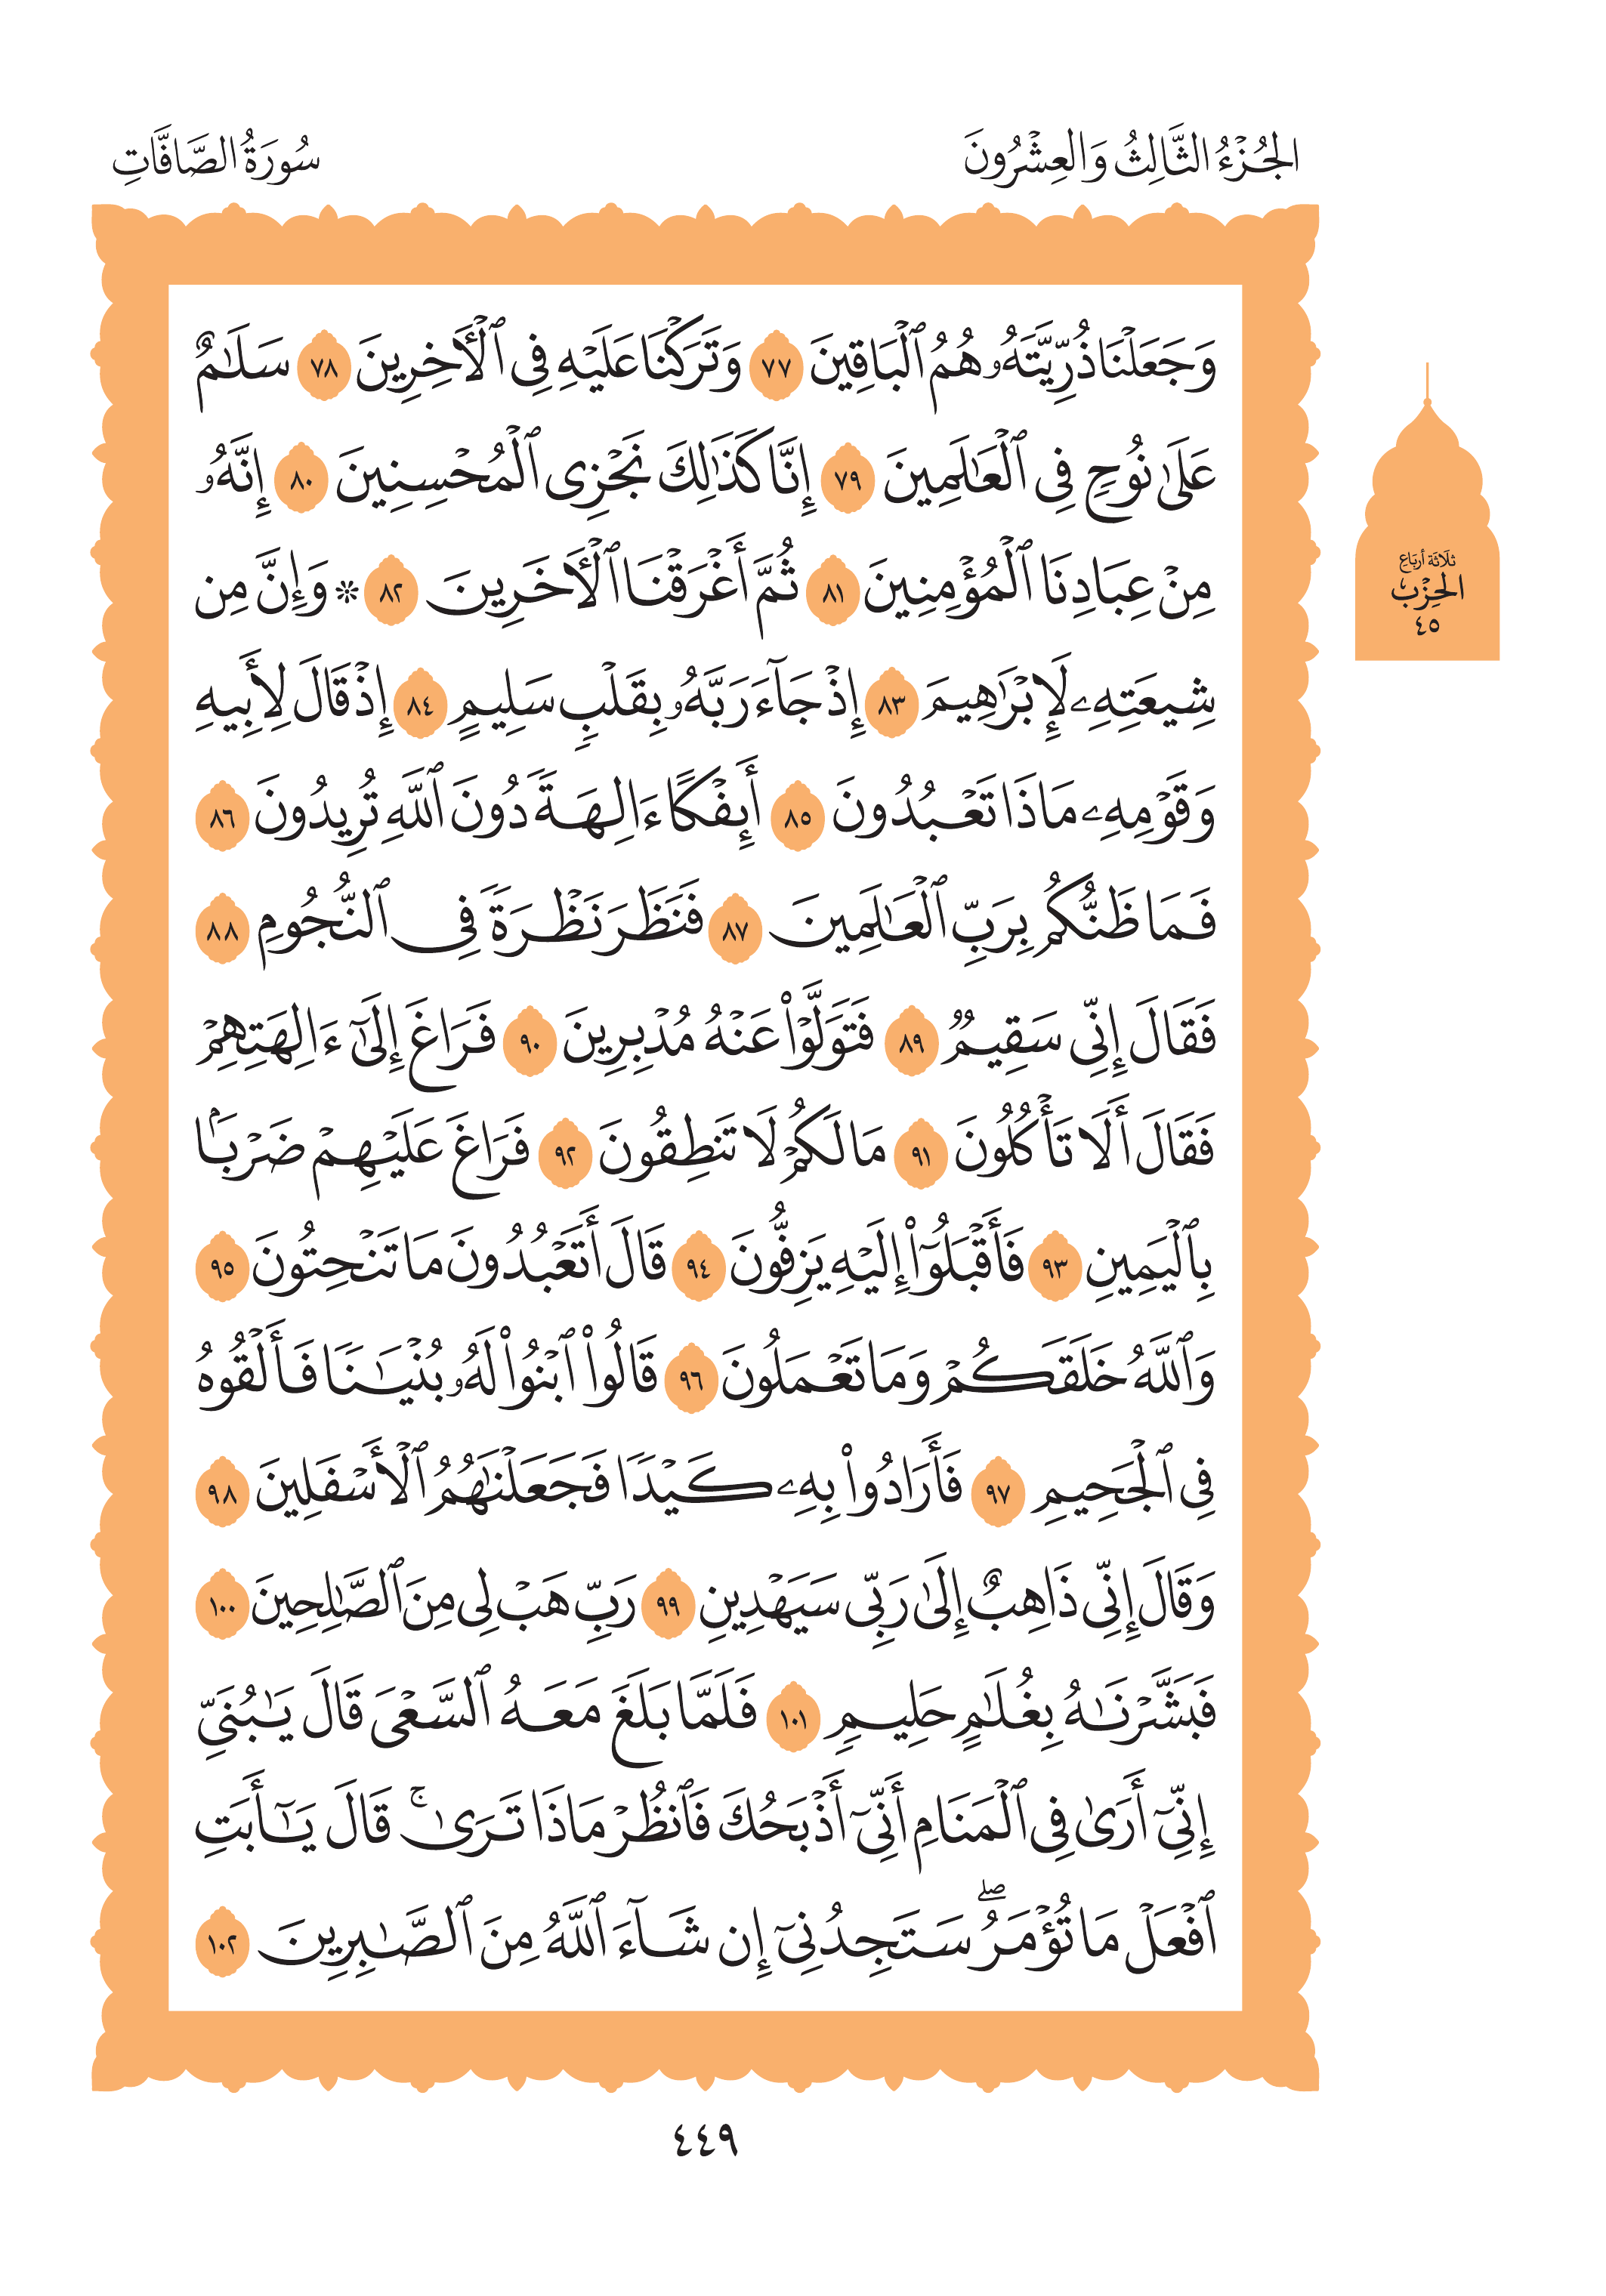 الجُزْءُ الثَّالِثُ وَالعِشْرُونَ
سُورَةُ الصَّافَّاتِ
وَجَعَلْنَا ذُرِّيَّتَهُۥ هُمُ ٱلْبَاقِينَ ٧٧ وَتَرَكْنَا عَلَيْهِ فِى ٱلْأَخِرِينَ ٧٨ سَلَٰمٌ
عَلَىٰ نُوحٍ فِى ٱلْعَٰلَمِينَ ٧٩ إِنَّا كَذَٰلِكَ نَجْزِى ٱلْمُحْسِنِينَ ٨٠ إِنَّهُۥ
مِنْ عِبَادِنَا ٱلْمُؤْمِنِينَ ٨١ ثُمَّ أَغْرَقْنَا ٱلْأَخَرِينَ ٨٢ ۞ وَإِنَّ مِن
شِيعَتِهِۦ لَإِبْرَٰهِيمَ ٨٣ إِذْ جَآءَ رَبَّهُۥ بِقَلْبٍ سَلِيمٍ ٨٤ إِذْ قَالَ لِأَبِيهِ
وَقَوْمِهِۦ مَاذَا تَعْبُدُونَ ٨٥ أَئِفْكًا ءَالِهَةً دُونَ ٱللَّهِ تُرِيدُونَ ٨٦
فَمَا ظَنُّكُم بِرَبِّ ٱلْعَٰلَمِينَ ٨٧ فَنَظَرَ نَظْرَةً فِى ٱلنُّجُومِ ٨٨
فَقَالَ إِنِّى سَقِيمٌ ٨٩ فَتَوَلَّوْا۟ عَنْهُ مُدْبِرِينَ ٩٠ فَرَاغَ إِلَىٰٓ ءَالِهَتِهِمْ
فَقَالَ أَلَا تَأْكُلُونَ ٩١ مَا لَكُمْ لَا تَنطِقُونَ ٩٢ فَرَاغَ عَلَيْهِمْ ضَرْبًۢا
بِٱلْيَمِينِ ٩٣ فَأَقْبَلُوٓا۟ إِلَيْهِ يَزِفُّونَ ٩٤ قَالَ أَتَعْبُدُونَ مَا تَنْحِتُونَ ٩٥
وَٱللَّهُ خَلَقَكُمْ وَمَا تَعْمَلُونَ ٩٦ قَالُوا۟ ٱبْنُوا۟ لَهُۥ بُنْيَٰنًا فَأَلْقُوهُ
فِى ٱلْجَحِيمِ ٩٧ فَأَرَادُوا۟ بِهِۦ كَيْدًا فَجَعَلْنَٰهُمُ ٱلْأَسْفَلِينَ ٩٨
وَقَالَ إِنِّى ذَاهِبٌ إِلَىٰ رَبِّى سَيَهْدِينِ ٩٩ رَبِّ هَبْ لِى مِنَ ٱلصَّٰلِحِينَ ١٠٠
فَبَشَّرْنَٰهُ بِغُلَٰمٍ حَلِيمٍ ١٠١ فَلَمَّا بَلَغَ مَعَهُ ٱلسَّعْىَ قَالَ يَٰبُنَىِّ
إِنِّىٓ أَرَىٰ فِى ٱلْمَنَامِ أَنِّىٓ أَذْبَحُكَ فَٱنظُرْ مَاذَا تَرَىٰ ۚ قَالَ يَٰٓأَبَتِ
ٱفْعَلْ مَا تُؤْمَرُ ۖ سَتَجِدُنِىٓ إِن شَآءَ ٱللَّهُ مِنَ ٱلصَّٰبِرِينَ ١٠٢
ثلَاثَة أَربَاع
الحِزْب
٤٥
٤٤٩